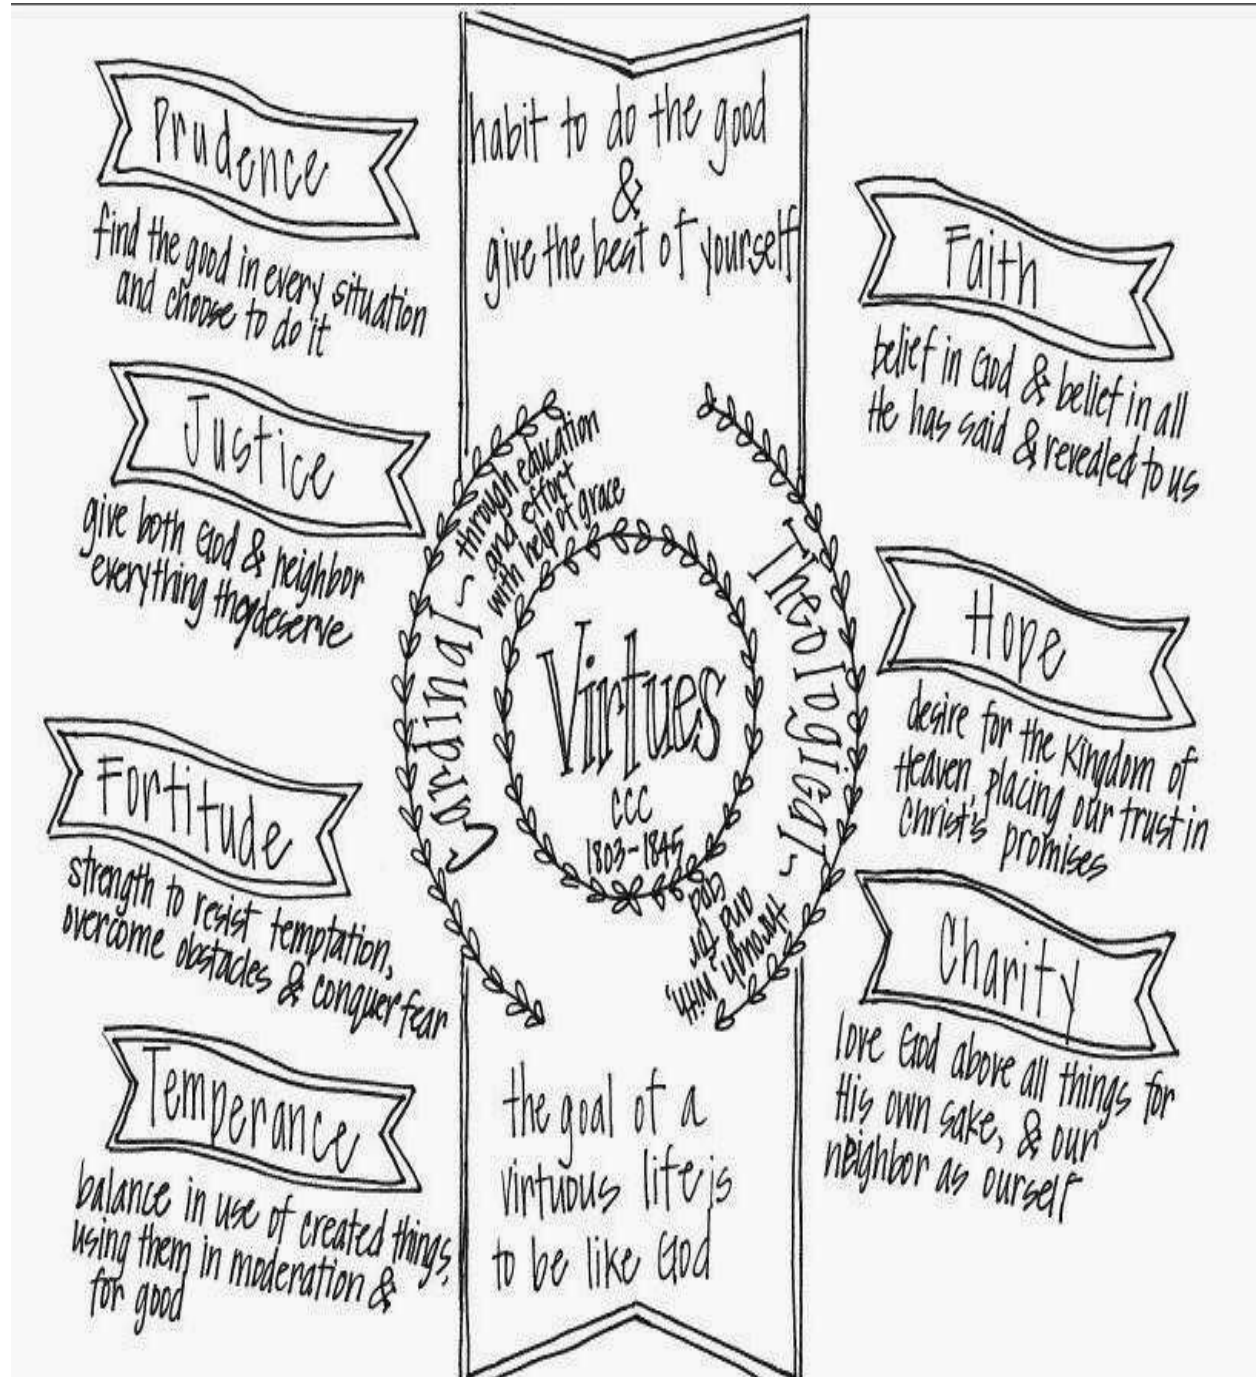 habit to do the good
&
give the best of yourself
Prudence
find the good in every situation
and choose to do it
Justice
give both God & neighbor
everything they deserve
Fortitude
strength to resist temptation,
overcome obstacles & conquer fear
Temperance
balance in use of created things,
using them in moderation &
for good
Cardinal ~
through education
and effort
with help of grace
Virtues
CCC
1803-1845
Theological ~
through, with,
and for
God
Faith
belief in God & belief in all
He has said & revealed to us
Hope
desire for the Kingdom of
Heaven, placing our trust in
Christ's promises
Charity
love God above all things for
His own sake, & our
neighbor as ourself
the goal of a
virtuous life is
to be like God